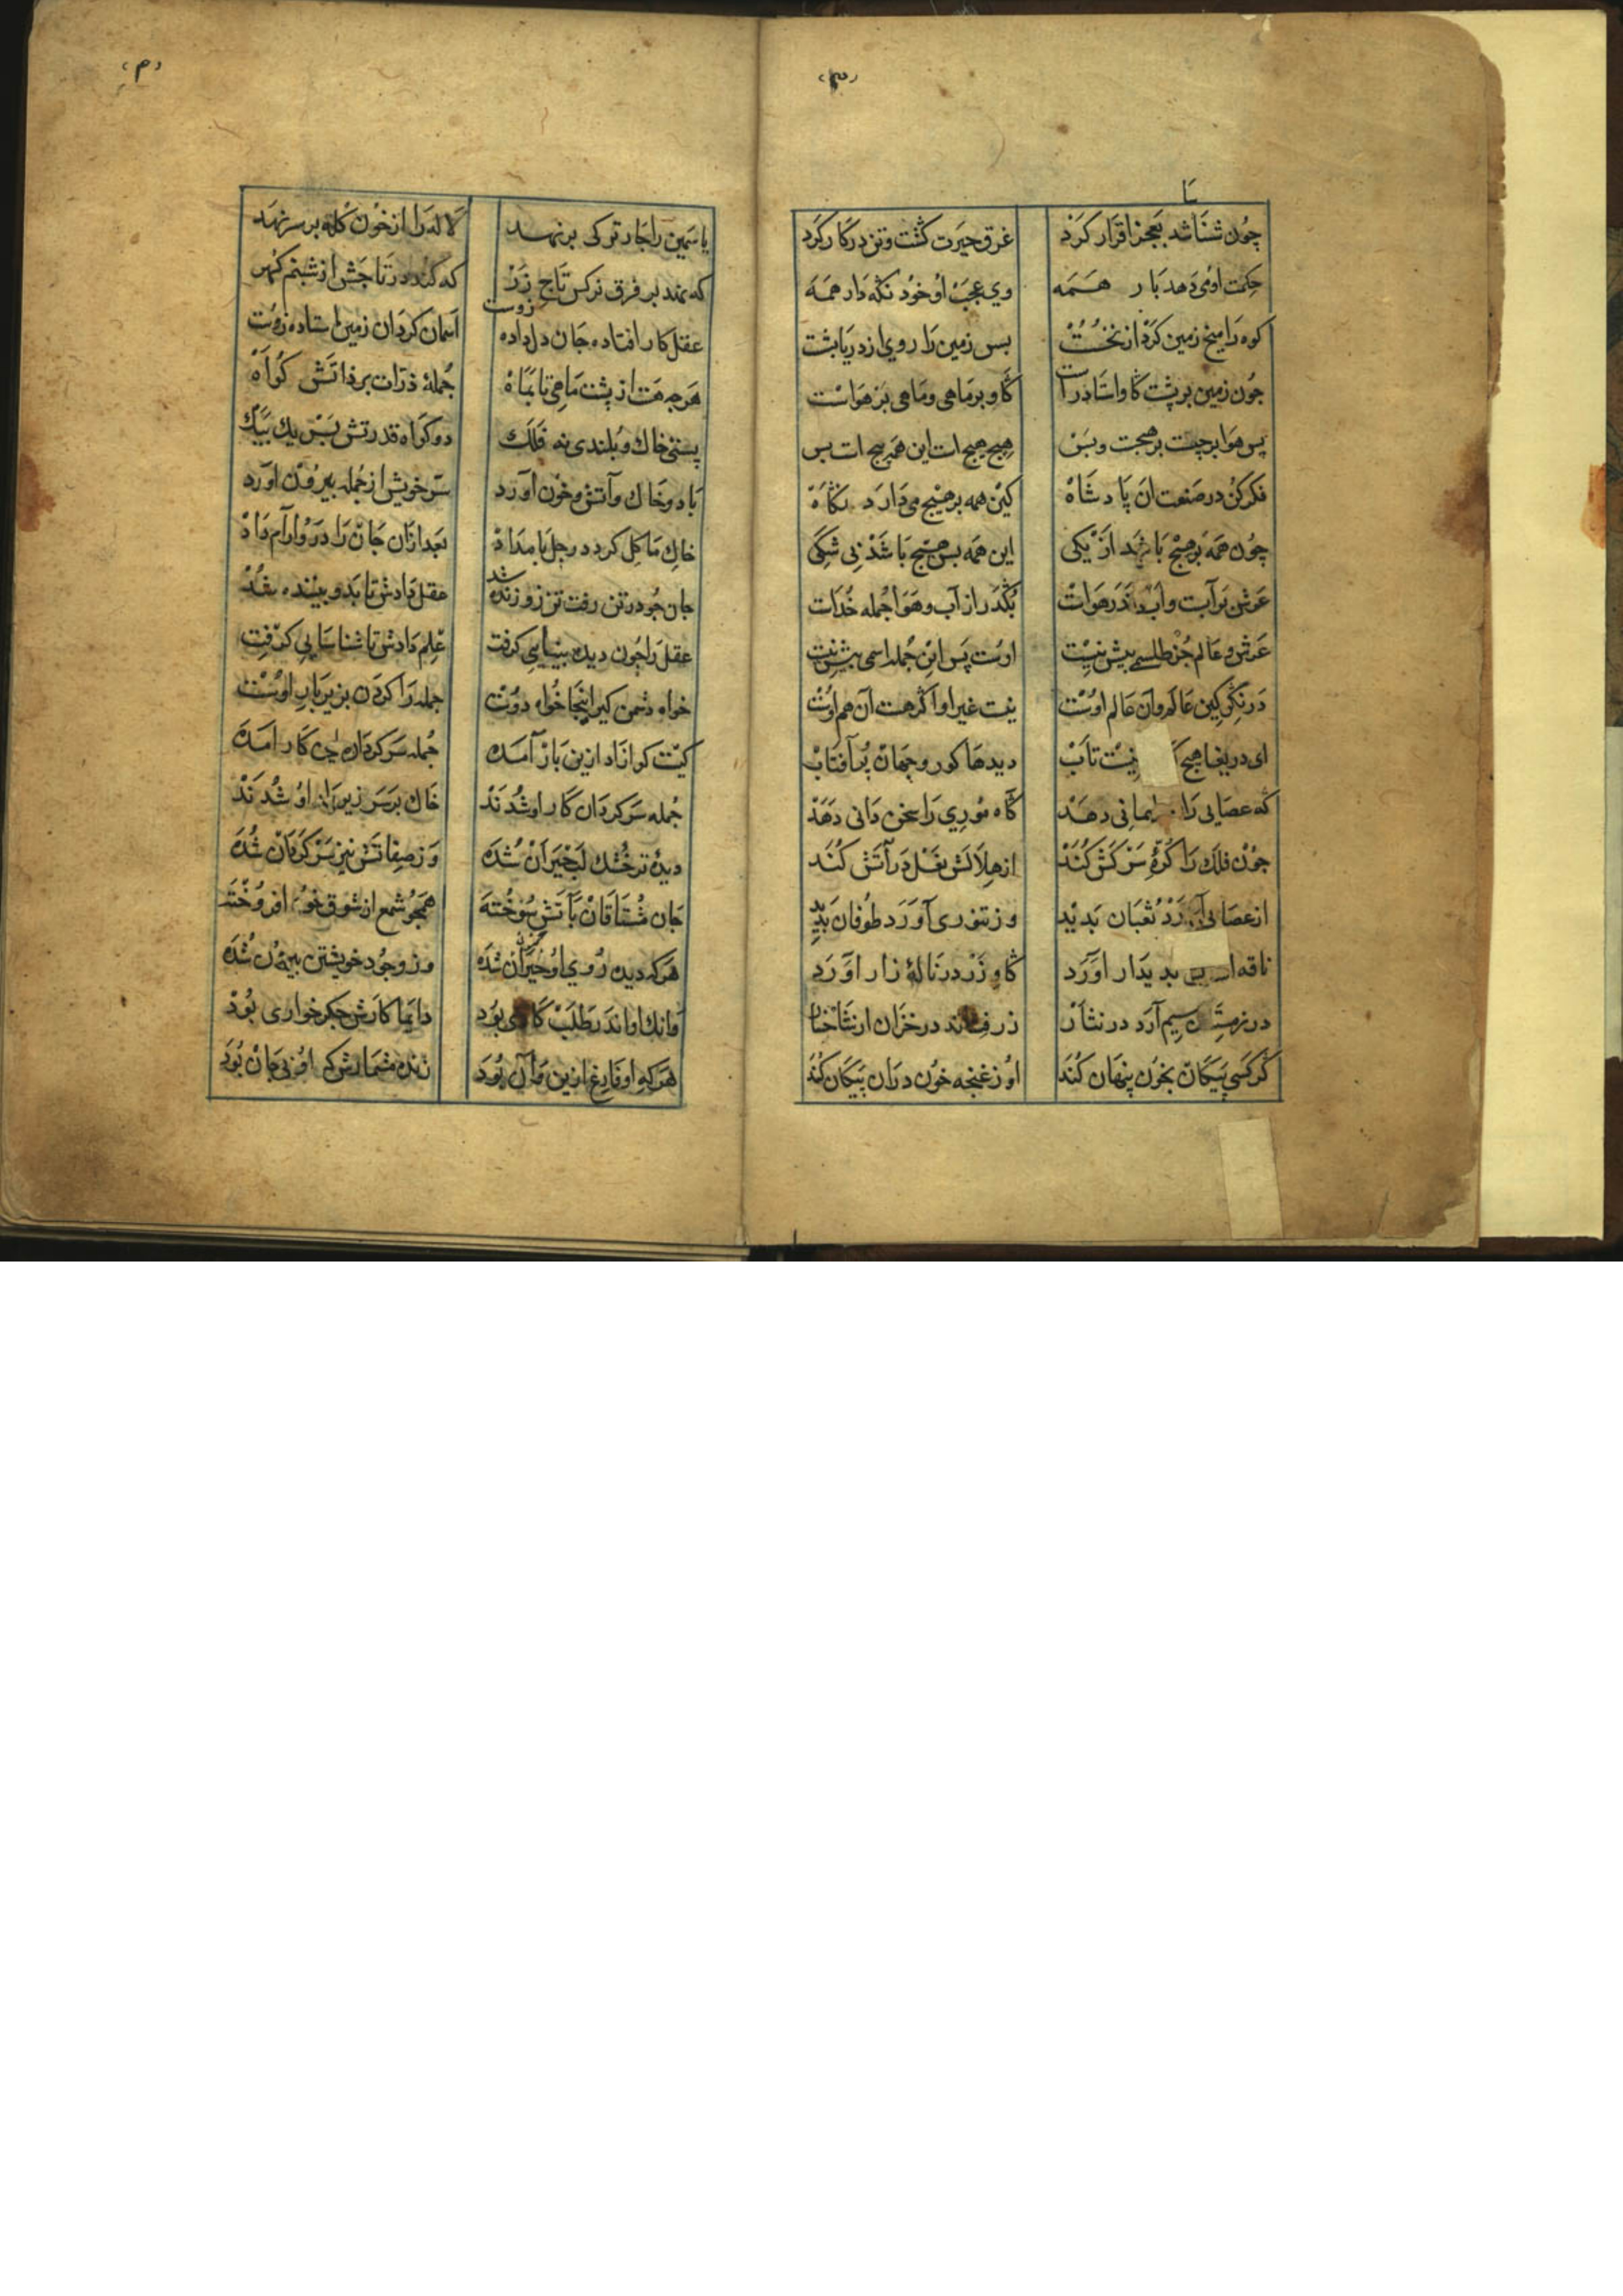 چون شناشد بعجز اقرار کرد غرق حیرت کشت و تن در کار کرد
حکمت او می دهد بار همه وی عجب او خود نکه دار همه
کوه را میخ زمین کرد از نخست بس زمین را روی از دریا بشست
چون زمین بر پشت کاو استاد راست کاو بر ماهی و ماهی بر هواست
پس هوا بر چیست بر هیچست و بس هیچ هیچ است این همه هیچ است بس
فکر کن در صنعت ان پادشاه کین همه بر هیچ می دارد نکاه
چون همه بر هیچ باشد از یکی این همه بس هیچ باشد بی شکی
عرش بر آبست و آب اندر هواست بکذر از آب و هوا جمله خداست
عرش و عالم جز طلسمی بیش نیست اوست پس این جمله اسمی بیش نیست
در نکر کین عالم و آن عالم اوست نیست غیر او اکر هست آن هم اوست
ای دریغا هیچ نیست تاب دیدها کور و جهان پر آفتاب
که عصایی را سلیمانی دهد کاه موری را سخن دانی دهد
چون فلک را کره سرکش کند از هلالش نعل در آتش کند
از عصایی آورد ثعبان بدید وز تنوری آورد طوفان بدید
ناقه از بدیدار اورد کاو زر در ناله زار اورد
در زمستان سیم آرد در نثار زر فشاند در خزان از شاخسار
کر کسی پیکان بخون پنهان کند او ز غنجه خون در ان پیکان کند
یاسمین را جار ترکی برنهد لاله را از خون کله بر سر نهد
که نهد بر فرق نرکس تاج زر که کند در تاجش از شبنم کهر
عقل کار افتاده جان دل داده زوست آسمان کردان زمین استاده زوست
هر چه هست از پشت ماهی تا بماه جمله ذرات بر ذاتش کواه
پستی خاک و بلندی نه فلک دو کواه قدرتش بس یک بیک
باد و خاک و آتش و خون آورد سر خویش از جمله بیرون اورد
خاک ما کل کرد در چل بامداد بعد ازان جان را درو ارام داد
جان چو در تن رفت تن زو زنده شد عقل دادش تا بدو بیننده شد
عقل را چون دیده بینایی کرفت علم دادش تا شناسایی کرفت
خواه دشمن کیر اینجا خواه دوست جمله را کردن بزیر بار اوست
کیست کو ازاد ازین باز آمده جمله سرکردان این کار امده
جمله سرکردان کار او شدند خاک بر سر زیر بار او شدند
دیده تر خشک لب حیران شده وز صفاتش نیز سرکردان شده
جان مشتاقان بآتش سوخته همچو شمع از شوق خود افروخته
هر که دیده روی او حیران شده وز وجود خویشتن بیرون شده
وانک او اندر طلب کاری بود دایما کارش جکر خواری بود
هر که او فارغ ازین بود زنده مشمارش که او بی جان بود